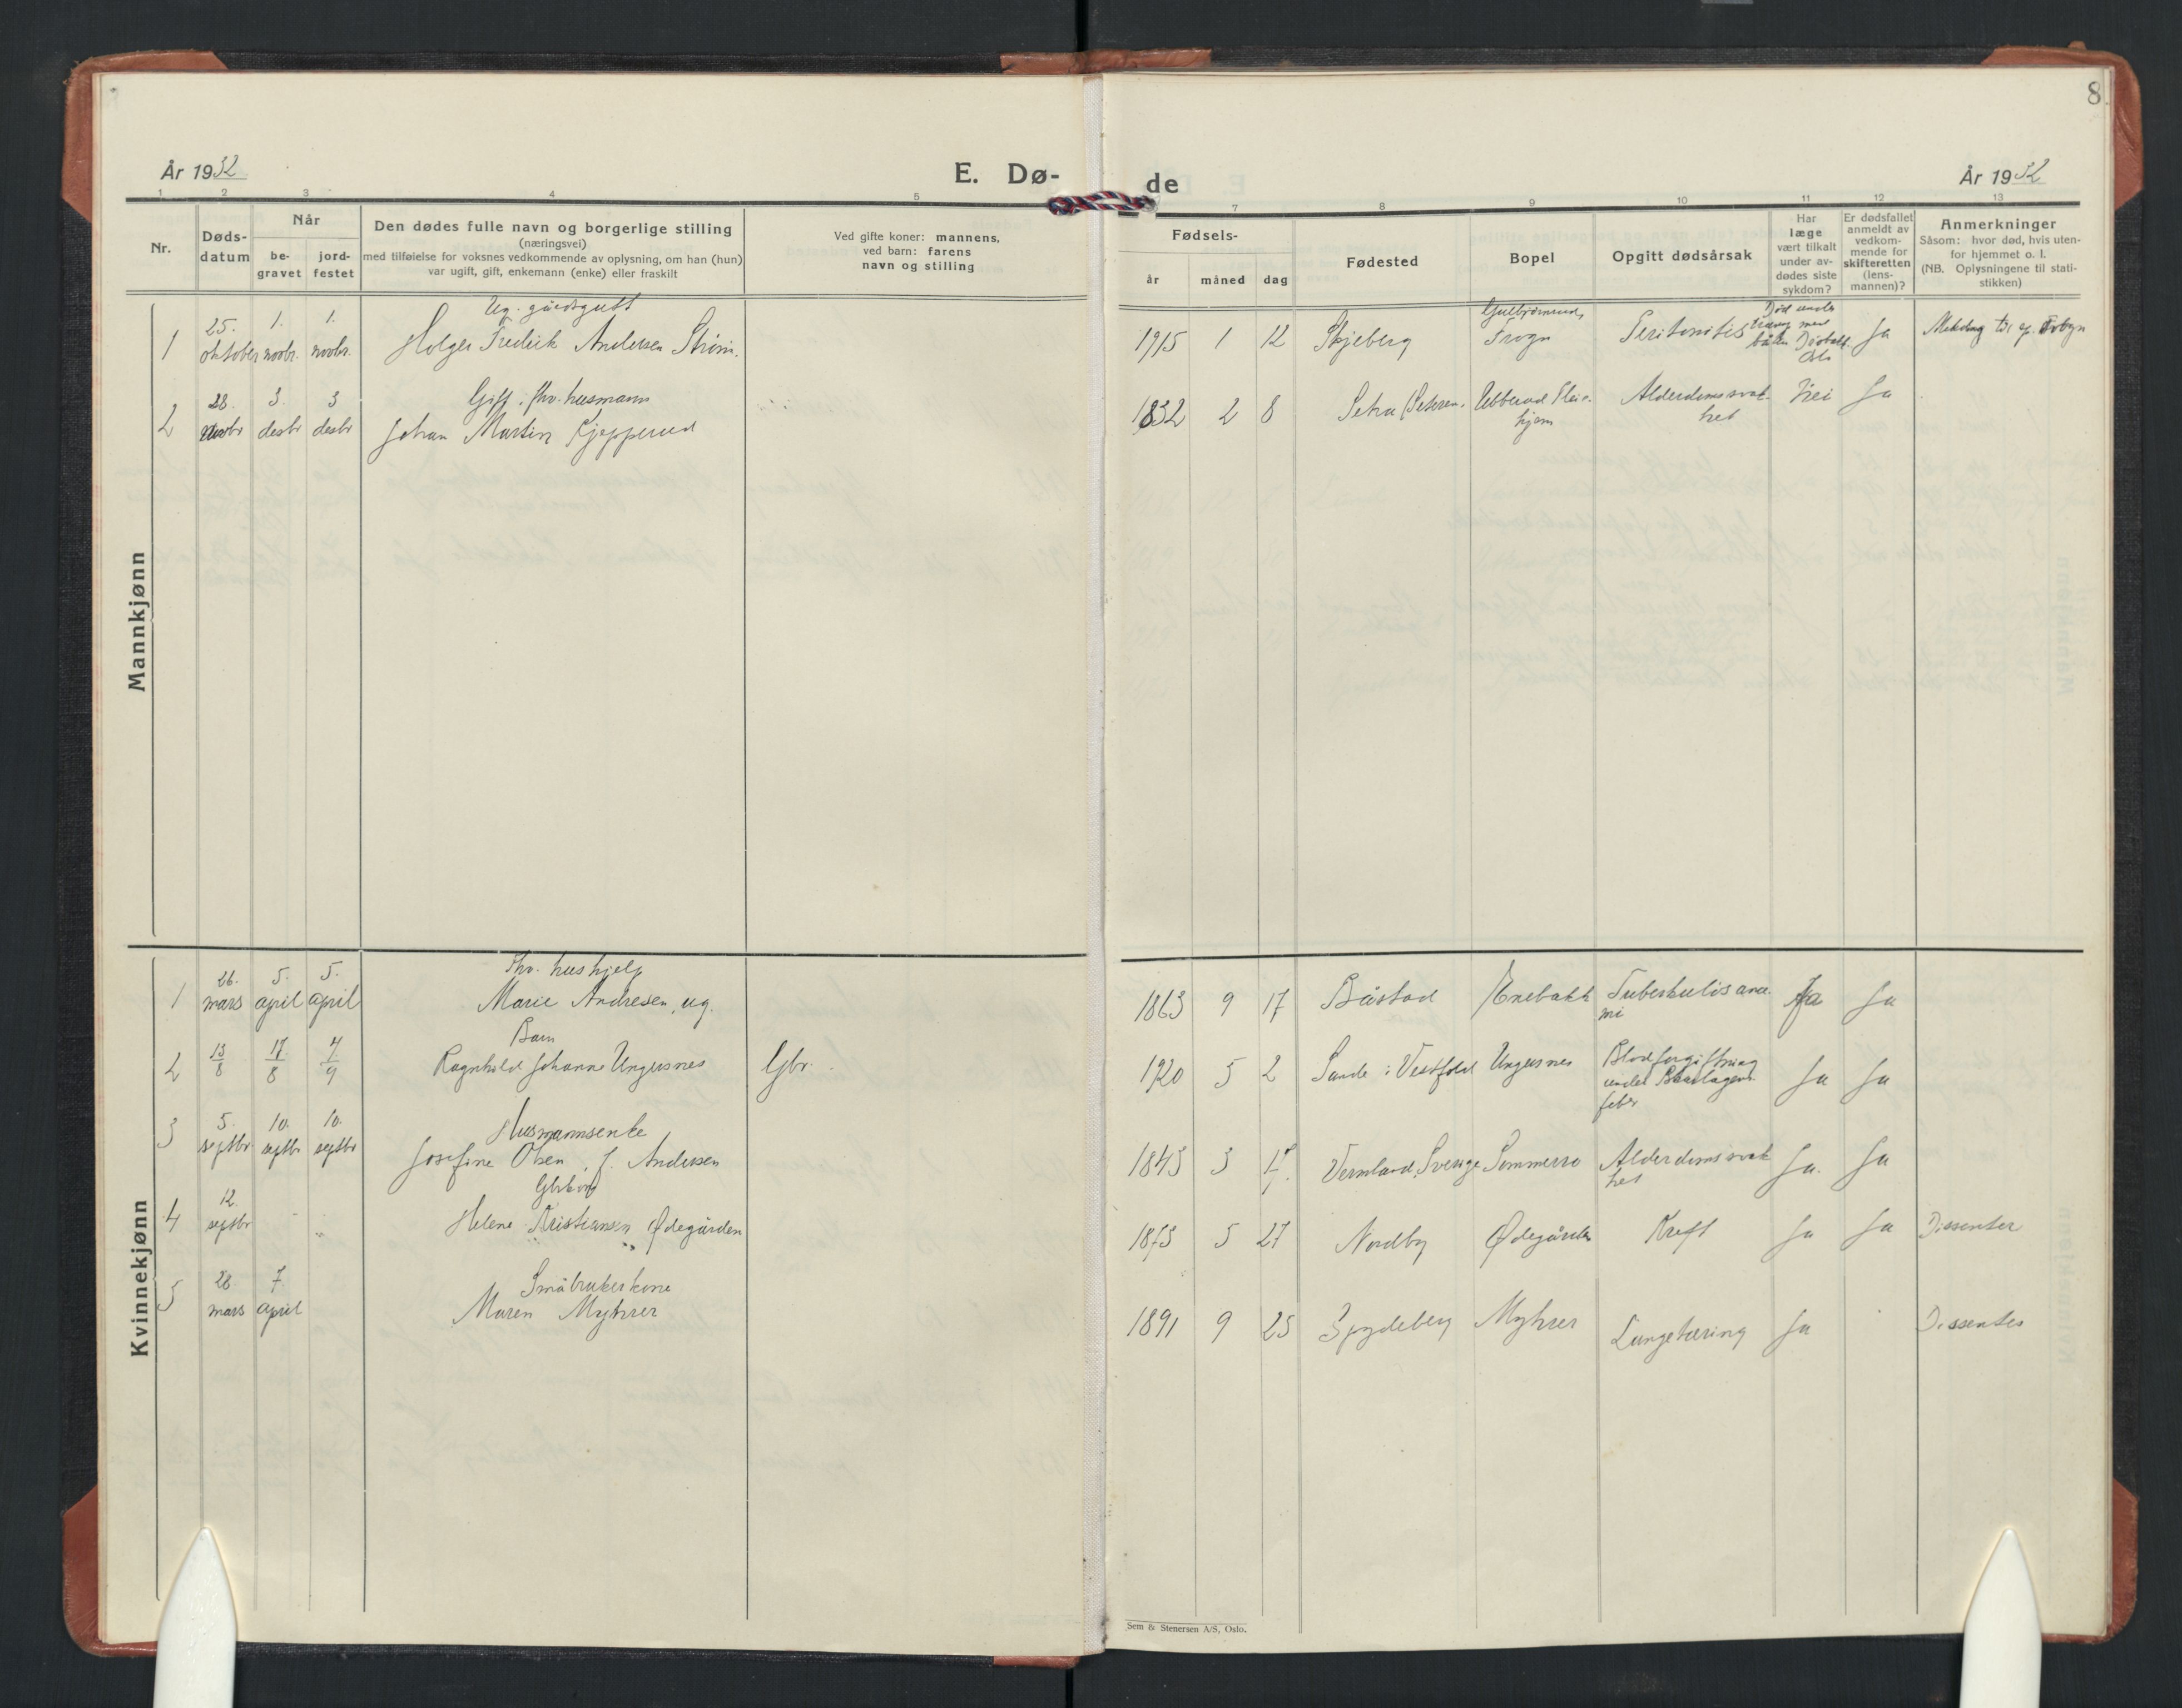 8
År 1932
E. Dø-
de
År 1932
1 2 3 4 5 7 8 9 10 11 12 13
Nr.
Døds-
datum
Når
be-
gravet
jord-
festet
Den dødes fulle navn og borgerlige stilling
(næringsvei)
med tilføielse for voksnes vedkommende av oplysning, om han (hun)
var ugift, gift, enkemann (enke) eller fraskilt
Ved gifte koner: mannens,
ved barn: farens
navn og stilling
Fødsels-
år
måned
dag
Fødested
Bopel
Opgitt dødsårsak
Har
læge
vært tilkalt
under av-
dødes siste
sykdom?
Er dødsfallet
anmeldt av
vedkom-
mende for
skifteretten
(lens-
mannen)?
Anmerkninger
Såsom: hvor død, hvis uten-
for hjemmet o. l.
(NB. Oplysningene til stati-
stikken)
Mannkjønn
Ug. gårdsgutt
1 25. oktober 1. novbr. 1. novbr. Holger Fredrik Andersen Strøm. 1915 1 12 Skjeberg Frogn Peritonitis Ja
Død under
Oslo
Gift, fhv. husmann
2 28. novbr 3. desbr 3 desbr Johan Martin Kjepperud 1832 2 8 Setra Ubberud Pleie-
hjem
Alderdomssvak-
het
Nei Ja
Kvinnekjønn
Fhv. hushjelp
1 26. mars 5. april 5. april Marie Andresen, ug. 1863 9 17 Båstad Enebakk Tuberkulis anæ-
mi
Ja Ja
Barn
2 13/8 17/8 4/9 Ragnhild Johanne Ungersnes Gbr. 1920 5 2 Sande i Vestfold Ungersnes Blodforgiftning
under
feber
Ja Ja
Husmannsenke
3 5. septbr. 10. septbr 10. septbr Josefine Olsen, f. Andersen 1843 3 17. Vermland, Sverige Sommerro Alderdomssvak
het
Ja. Ja
Gbrkone
4 12. septbr Helene Kristiansen Ødegården 1873 5 27 Nordby Ødegården Kreft Ja Ja Dissenter
Småbrukerkone
5 28. mars 7. april Maren Myhrer 1891 9 25 Spydeberg Myhrer Lungetæring Ja Dissenter
Sem & Stenersen A/S, Oslo.